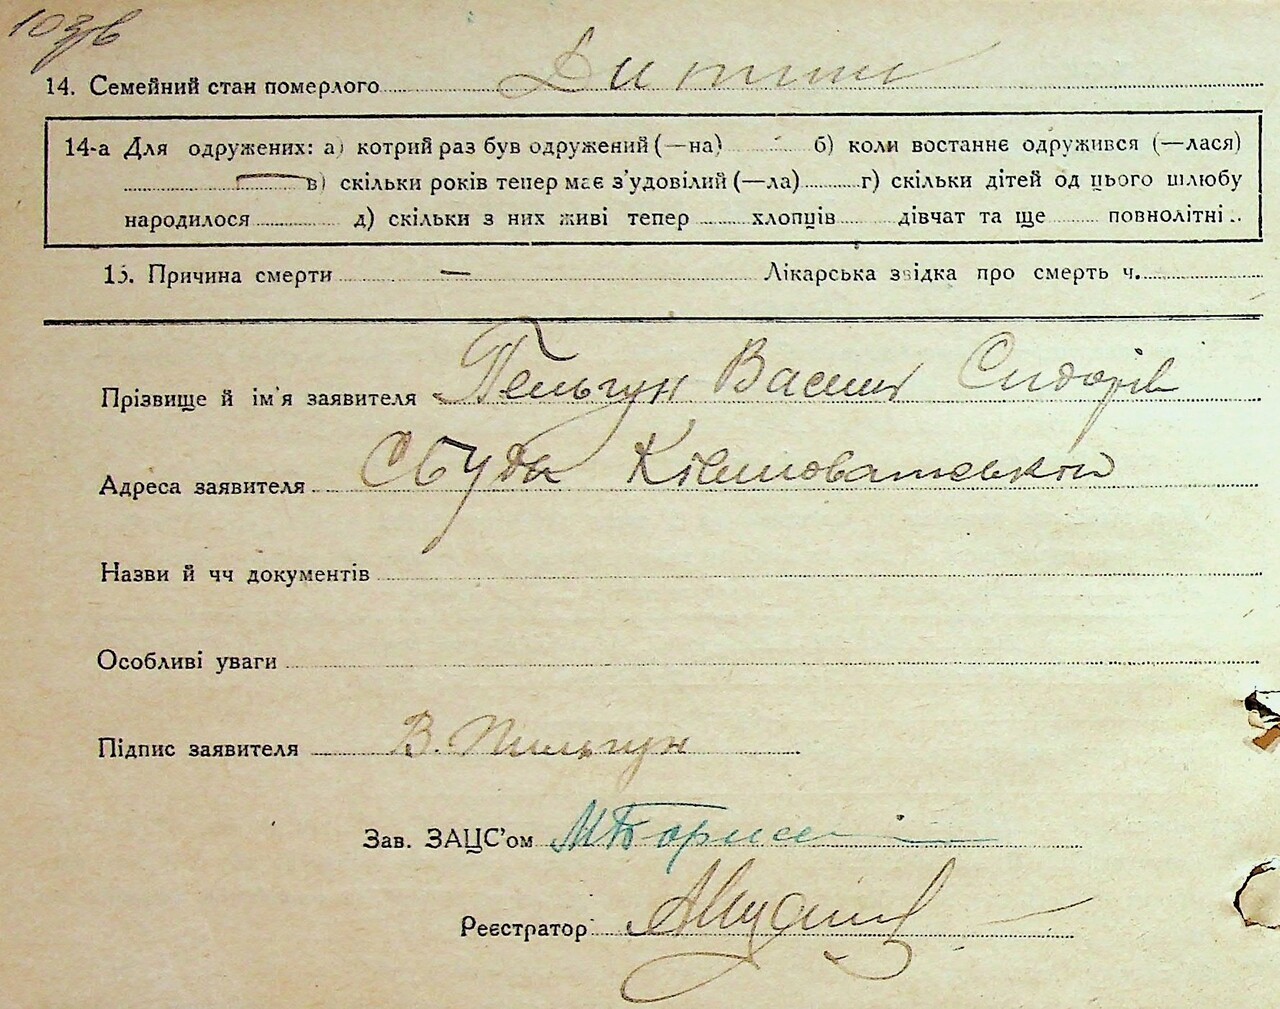 103/в
14. Семейний стан померлого Дитина
14-а Для одружених: а) котрий раз був одружений (—на) б) коли востаннє одружився (—лася)
в) скільки років тепер має з'удовілий (—ла) г) скільки дітей од цього шлюбу
народилося д) скільки з них живі тепер хлопців дівчат та ще повнолітні
15. Причина смерти — Лікарська звідка про смерть ч.
Прізвище й ім'я заявителя Пельгун Василь Сидорів
Адреса заявителя С Буда
Назви й чч документів
Особливі уваги
Підпис заявителя В. Пильгун
Зав. ЗАЦС'ом
Реєстратор